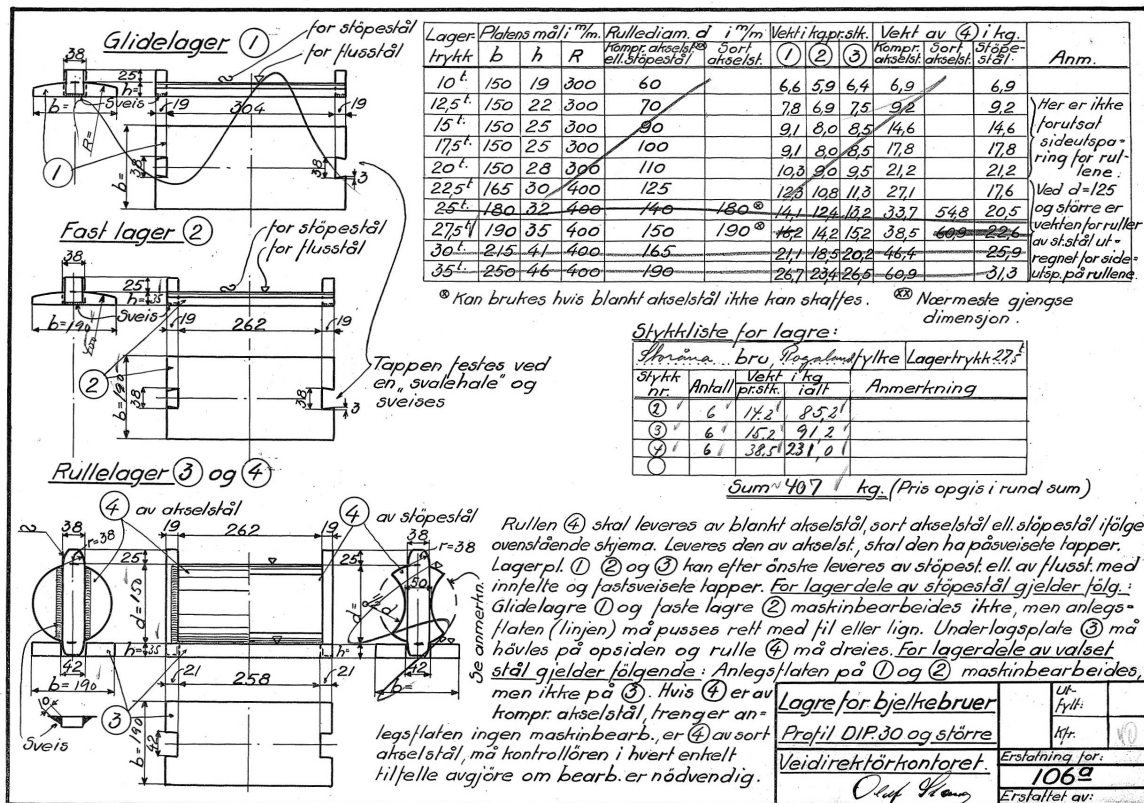 Glidelager ①
for stöpestål
for flusstål
38
25
h=
b=
R=
Sveis
19
304
19
①
b=
38
38
3
Fast lager ②
for stöpestål
for flusstål
38
25
h=35
b=190
400
Sveis
19
262
19
②
b=190
38
38
3
Tappen festes ved
en „svalehale" og
sveises
Rullelager ③ og ④
④ av akselstål
④ av stöpestål
38
r=38
19
262
19
38
r=38
25
25
d=150
d=
50
d
h=35
h=
42
b=190
21
258
21
42
b=
Se anmerkn.
10
Sveis
③
b=190
42
Lager-trykk | Platens mål i m/m | Rullediam. d i m/m | Vekt i kg.pr.stk. | Vekt av ④ i kg. | Anm.
b | h | R | Kompr. akselst. ell. stöpestål ⓧⓧ | Sort akselst. | ① | ② | ③ | Kompr. akselst. | Sort akselst. | Stöpe-stål
10 t. 150 19 300 60 6,6 5,9 6,4 6,9 6,9
12,5 t. 150 22 300 70 7,8 6,9 7,5 9,2 9,2
15 t. 150 25 300 90 9,1 8,0 8,5 14,6 14,6
17,5 t. 150 25 300 100 9,1 8,0 8,5 17,8 17,8
20 t. 150 28 300 110 10,3 9,0 9,5 21,2 21,2
22,5 t. 165 30 400 125 12,3 10,8 11,3 27,1 17,6
25 t. 180 32 400 140 180 ⓧ 14,1 12,4 13,2 33,7 54,8 20,5
27,5 t 190 35 400 150 190 ⓧ 16,2 14,2 15,2 38,5 60,9 22,6
30 t. 215 41 400 165 21,1 18,5 20,2 46,4 25,9
35 t. 250 46 400 190 26,7 23,4 26,5 60,9 31,3
Her er ikke
forutsat
sideutspa-
ring for rul-
lene.
Ved d=125
og större er
vekten for ruller
av st.stål ut-
regnet for side-
utsp. på rullene.
ⓧ Kan brukes hvis blankt akselstål ikke kan skaffes.
ⓧⓧ Nærmeste gjengse
dimensjon.
Stykkliste for lagre:
bru, Rogaland fylke Lagertrykk 27,5 t
Stykk nr. | Antall | Vekt i kg pr.stk. | ialt | Anmerkning
② 6 14.2 85,2
③ 6 15.2 91,2
④ 6 38,5 231,0
Sum ~ 407 kg. (Pris opgis i rund sum)
Rullen ④ skal leveres av blankt akselstål, sort akselstål ell. stöpestål ifölge
ovenstående skjema. Leveres den av akselst., skal den ha påsveisete tapper.
Lagerpl. ① ② og ③ kan efter önske leveres av stöpest. ell. av flusst. med
innfelte og fastsveisete tapper. For lagerdele av stöpestål gjelder fölg.:
Glidelagre ① og faste lagre ② maskinbearbeides ikke, men anlegs-
flaten (linjen) må pusses rett med fil eller lign. Underlagsplate ③ må
hövles på opsiden og rulle ④ må dreies. For lagerdele av valset
stål gjelder fölgende: Anlegsflaten på ① og ② maskinbearbeides,
men ikke på ③. Hvis ④ er av
kompr. akselstål, trenger an-
legsflaten ingen maskinbearb., er ④ av sort
akselstål, må kontrollören i hvert enkelt
tilfelle avgjöre om bearb. er nödvendig.
Lagre for bjelkebruer
Profil DIP. 30 og större
Veidirektörkontoret.
Ut-
fylt:
Kfr.
Erstatning for:
106a
Erstattet av: